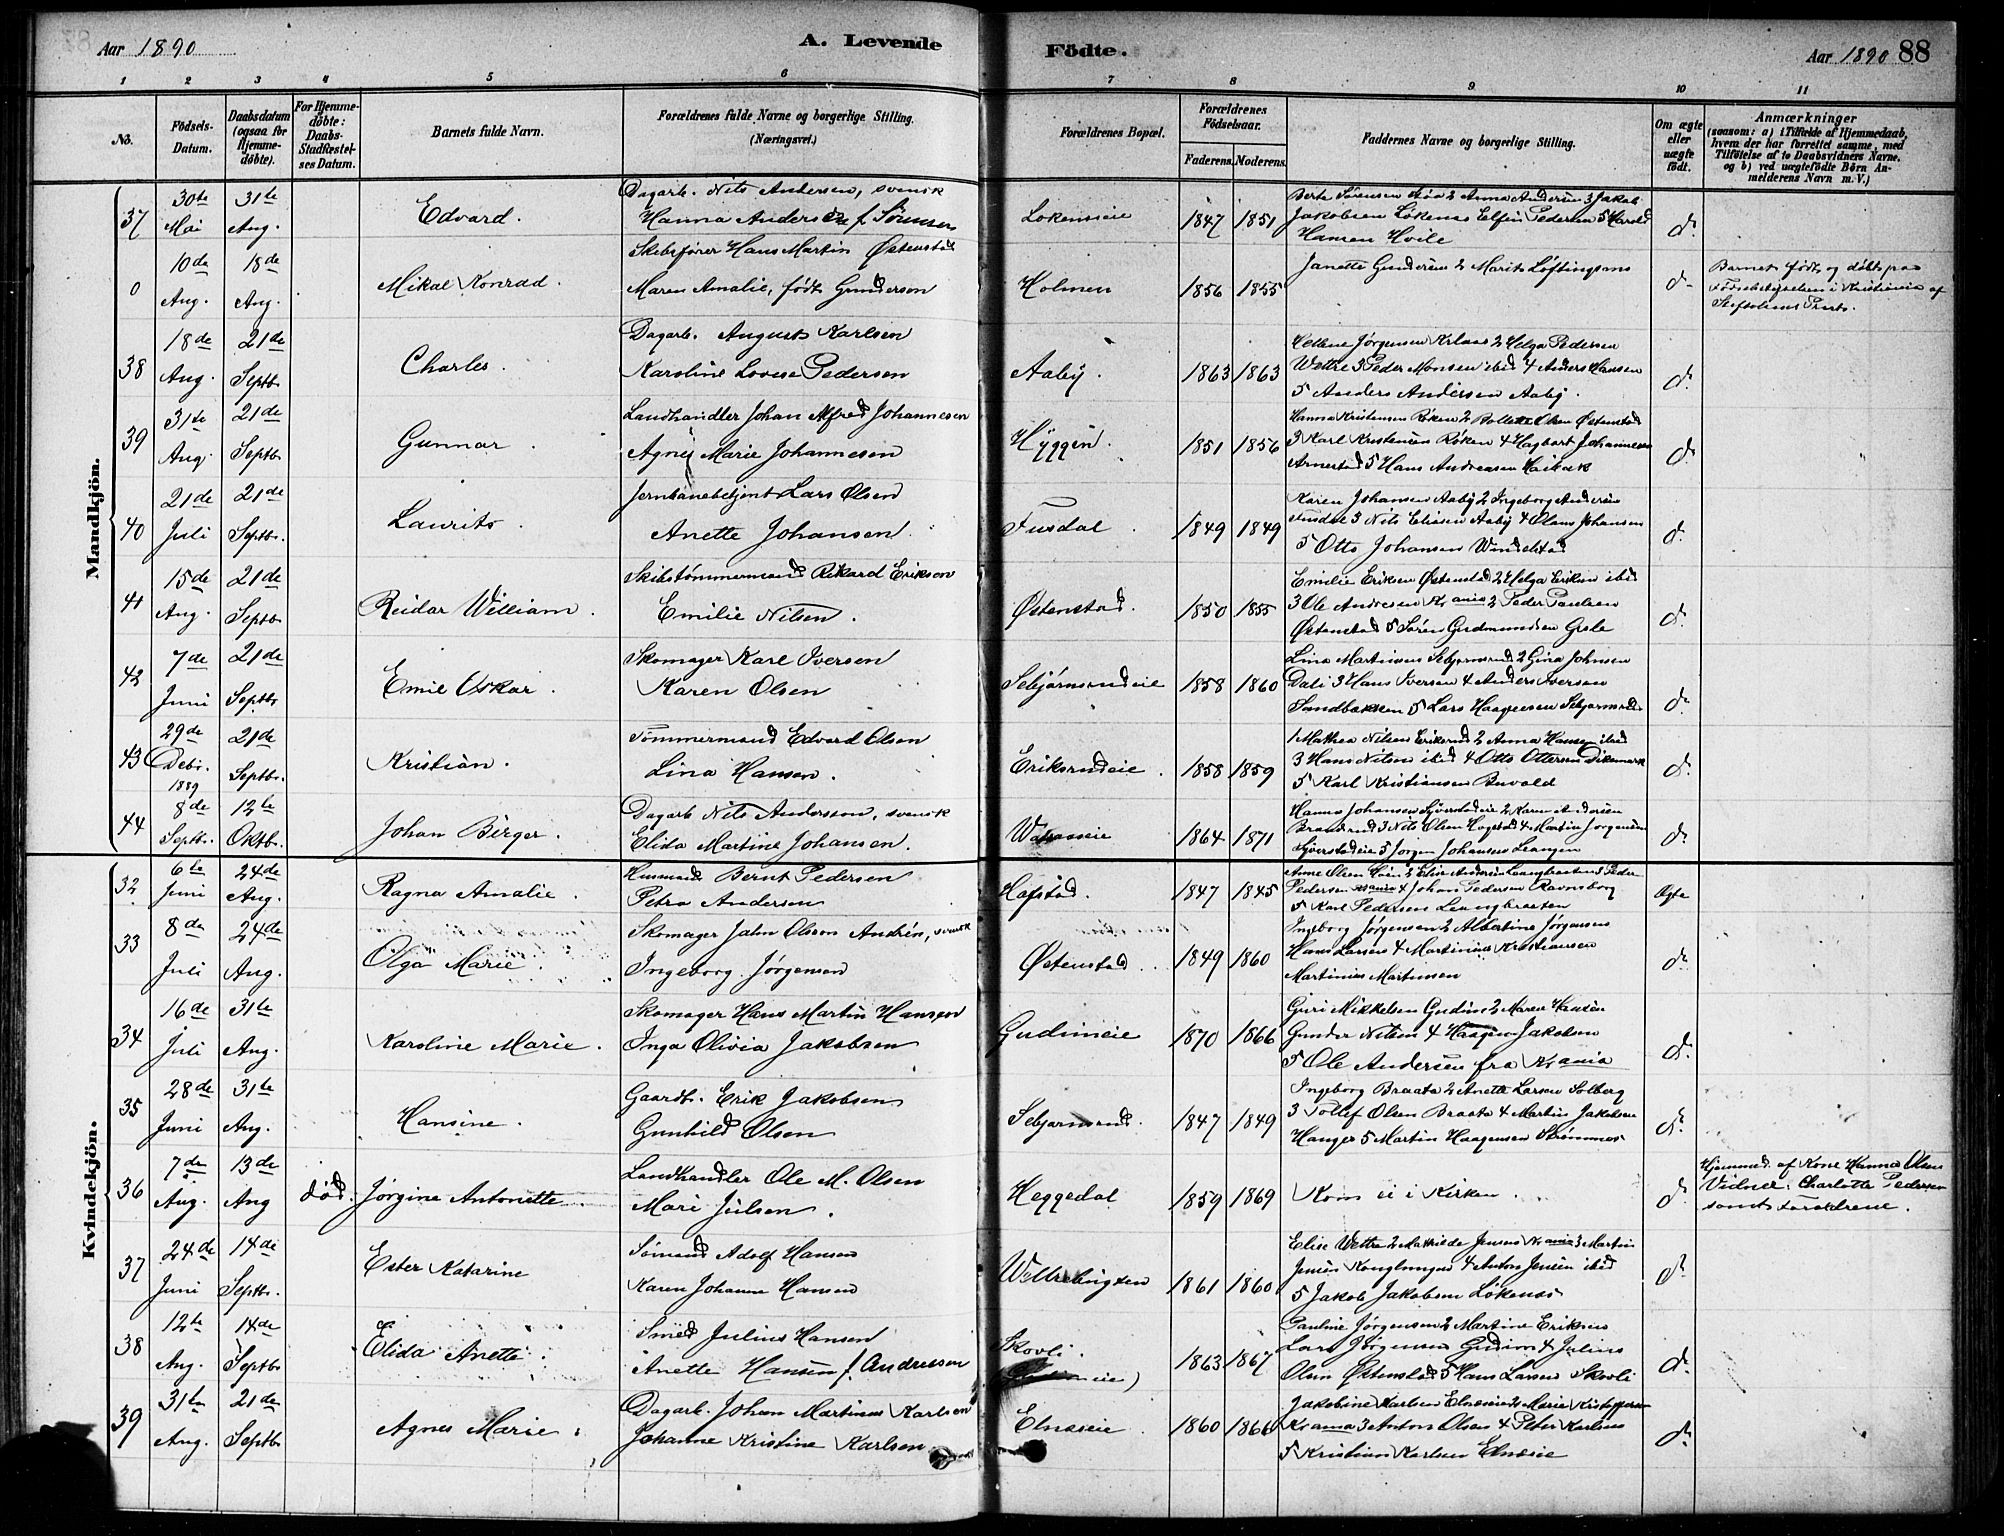 Aar 1890
A. Levende
Födte.
Aar 1890 88
1 2 3 4 5 6 7 8 9 10 11
No.
Födsels-Datum.
Daabsdatum (ogsaa for Hjemme-döbte).
For Hjemme-döbte: Daabs-Stadfæstel-ses Datum.
Barnets fulde Navn.
Forældrenes fulde Navne og borgerlige Stilling. (Næringsvei.)
Forældrenes Bopæl.
Forældrenes Födselsaar.
Faderens. Moderens.
Faddernes Navne og borgerlige Stilling.
Om ægte eller uægte født.
Anmærkninger
(saasom: a) i Tilfælde af Hjemmedaab,
hvem der har forrettet samme, med
Tilföielse af to Daabsvidners Navne,
og b) ved uægtefødte Börn An-
melderens Navn m. V.)
Mandkjön.
37 30te Mai 31te Aug. Edvard.
Dagarb. Nils Andersen, svensk
Hanna Andersen f. Sørensen
Lokenseie 1847 1851
Jakobsen Løkenes Elfin Pedersen 5 Harald
Hansen Hvile
d.
0 10de Aug. 18de Aug. Mikal Konrad.
Skibsfører Hans Martin Østenstad
Maren Amalie, født Gunderson
Holmen 1856 1855
Janette Gundersen 2 Marit Løftingsmo
d.
Barnet født og døbt paa
Fødselsstiftelsen i Kristiania af
Stiftelsens Præst.
38 18de Aug. 21de Septb. Charles.
Dagarb. August Karlsen
Karoline Lovise Pedersen
Aaby. 1863 1863
Jørgensen 2 Helga Pedersen
Wettre 3 Peder Monsen ibid 4 Anders Hansen
5 Anders Andersen Aaby.
d.
39 31te Aug. 21de Septb. Gunnar.
Landhandler Johan Alfred Johannesen
Agnes Marie Johannesen
Hyggen. 1851 1856
Hanna Kristensen Røken 2 Bollette Olsen Østenstad
3 Karl Kristensen Røken 4 Hagbart Johannesen
Arnestad 5 Hans Andreasen
d.
40 21de Juli 21de Septbr. Laurits.
Jernbanebetjent Lars Olsen
Anette Johansen.
Fusdal. 1849 1849
Karen Johansen Aaby 2 Ingeborg Andersen
Fusdal 3 Nils Eliasen Aaby 4 Olaus Johansen
5 Otto Johansen Wendelstad
d.
41 15de Aug. 21de Septb. Reidar William.
Skibstømmermand Rikard Erikson
Emilie Nilsen.
Østenstad. 1850 1855
Emilie Eriksen Østenstad 2 Helga Eriksen ibid
3 Ole Andresen Kr.ania 2 Peder Paulsen
Østenstad 5 Søren Gudmundsen Gisle
d.
42 7de Juni 21de Septb. Emil Oskar.
Skomager Karl Iversen
Karen Olsen
Sebjørnsrudeie 1858 1860
Lina Martinsen Sebjørnsrud 2 Gina Johnsen
Dali 3 Hans Iversen 4 Anders Iversen
Sandbakken 5 Lars Haagensen Sebjørnsrud
d.
43 29de Debr. 1889 21de Septbr. Kristian.
Tømmermand Edvard Olsen
Lina Hansen.
Eriksrudeie. 1858 1859
1 Mathea Nilsen Eriksrud 2 Anna Hansen ibid
3 Hans Nilsen ibid 4 Otto Ottersen Dikemark
5 Karl Kristiansen Buvold
d.
44 8de Septbr. 12te Oktbr. Johan Birger.
Dagarb. Nils Andersson, svensk
Elida Martine Johansen.
1864 1871
Hanna Johansen 2 Karen Andersen
3 Nils Olsen Hogstad 4 Martin Jørgensen
5 Jørgen Johansen Leangen
d.
Kvindekjön.
32 6te Juni 24de Aug. Ragna Amalie.
Husmand Bernt Pedersen
Petra Andersen
Hofstad. 1847 1845
Anne Olsen 2 Elise Andersen Leangbraaten 3 Peder
Pedersen Kr.ania 4 Johan Pedersen Ravnsborg
5 Karl Pedersen Leangbraaten
Ægte
33 8de Juli 24de Aug. Olga Marie.
Skomager Jahn Olsson Andrén, svensk
Ingeborg Jørgensen
Østenstad. 1849 1860
Ingeborg Jørgensen 2 Albertine Jørgensen
Hans Larsen 4 Martinius Kristiansen
Martinius Martinsen
d.
34 16de Juli 31te Aug. Karoline Marie.
Skomager Hans Martin Hansen
Inga Olivia Jakobsen
Gudimeie 1870 1866
Guri Mikkelsen Gudim 2 Maren Hansen
Gunder Nilsen 4 Haagen Jakobsen
5 Ole Andersen fra Kr.ania
d.
35 28de Juni 31te Aug. Hansine.
Gaardbr. Erik Jakobsen
Gunhild Olsen
Sebjørnsrud. 1847 1849
Ingeborg Braata 2 Anette Larsen Solberg
3 Tollef Olsen Braata 4 Martin Jakobsen
Hanger 5 Martin Haagensen Strømmen
d.
36 7de Aug. 13de Aug død. Jørgine Antonette.
Landhandler Ole M. Olsen
Mari Juilsen.
Heggedal 1859 1869
Kom ei i Kirken.
d.
Hjemmed. af Kone Hanna Olsen
Vidner: Charlotte Pedersen
samt Forældrene.
37 24de Juni 14de Septbr. Ester Katarine
Sømand Adolf Hansen
Karen Johanne Hansen
Wettrebugten 1861 1860
Elise Wettre 2 Mathilde Jensen Kr.ania 3 Martin
Jensen 4 Anton Jensen ibid
5 Jakob Jakobsen Løkenes
d.
38 12te Aug. 14de Septbr. Elida Anette.
Smed Julius Hansen
Anette Hansen f. Andressen
Skovli. 1863 1867
Pauline Jørgensen 2 Martine Eriksen
Lars Jørgensen Gudim 4 Julius
Olsen Østenstad 5 Hans Larsen Skovli
d.
39 31te Aug. 21de Septb Agnes Marie.
Dagarb. Johan Martinus Karlsen
Johanne Kristine Karlsen
Elnæseie 1860 1866
Jakobine Karlsen Elnæseie 2 Marie Kristoffersen
Kr.ania 3 Anton Olsen 4 Peter Karlsen
5 Kristian Karlsen Elnæseie
d.